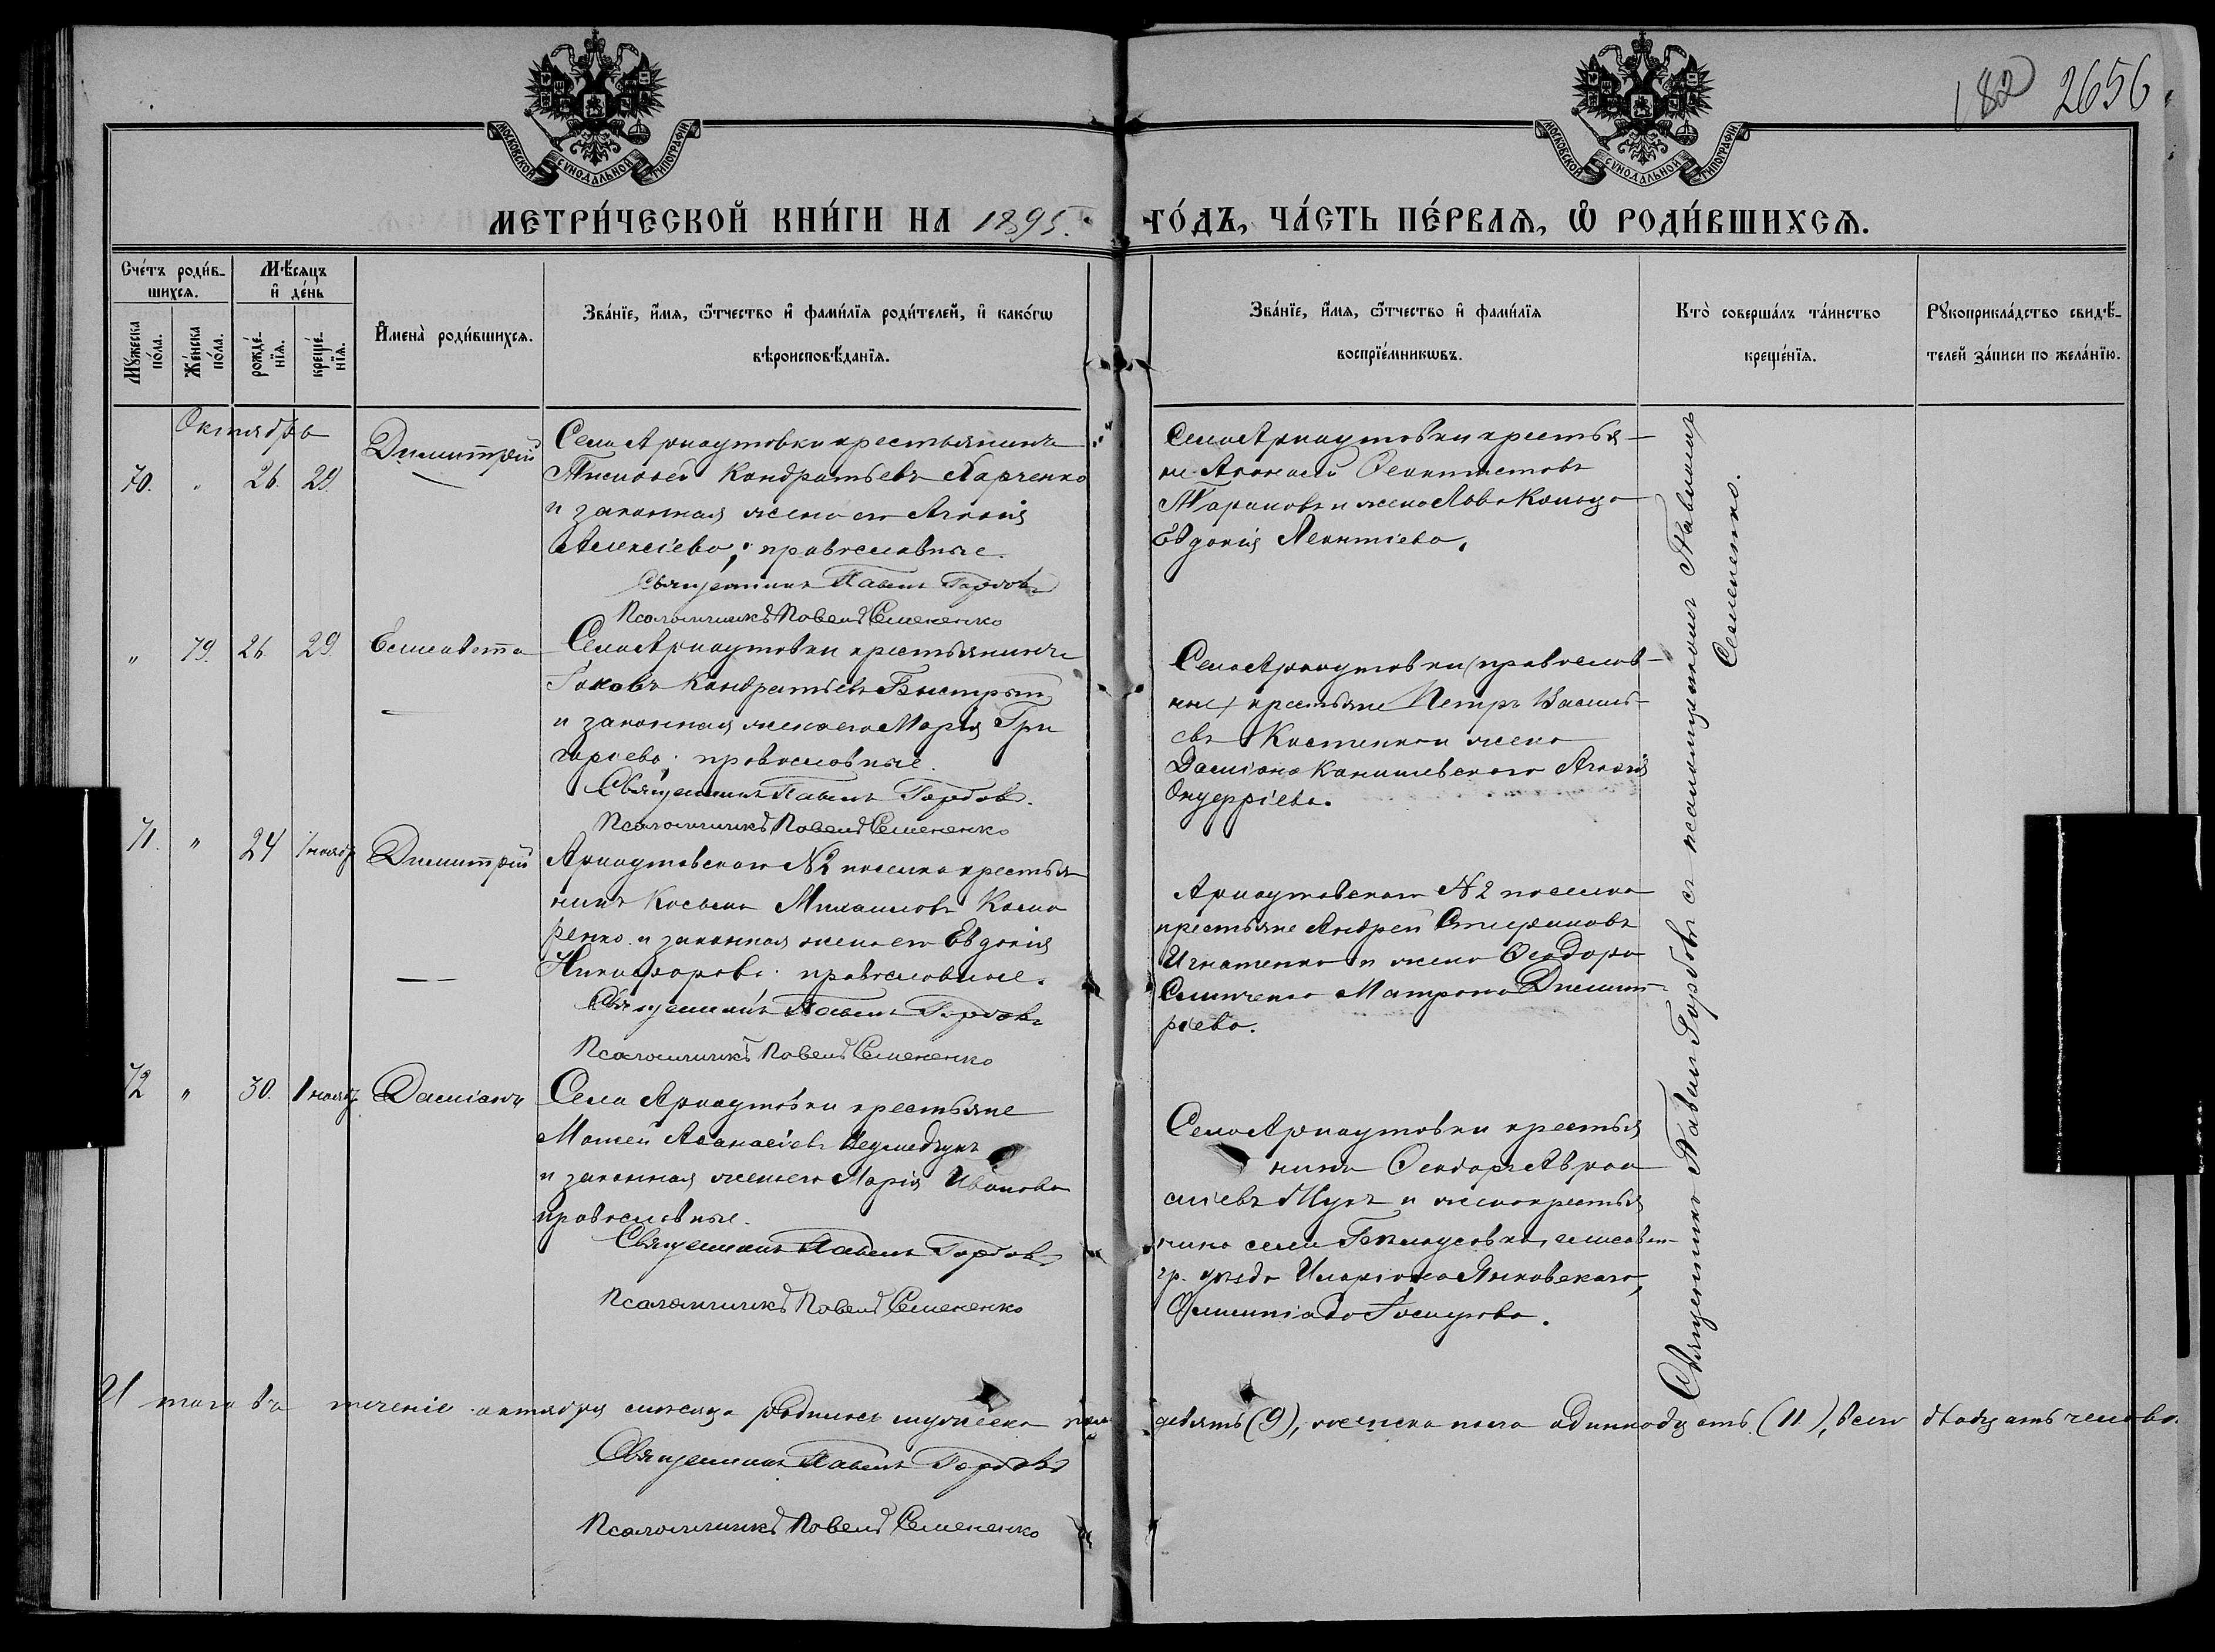 182 2656
МОСКОВСКОЙ СѴНОДАЛЬНОЙ ТИПОГРАФІИ
МОСКОВСКОЙ СѴНОДАЛЬНОЙ ТИПОГРАФІИ
МЕТРИ́ЧЕСКОЙ КНИ́ГИ НА 1895.
ГО́ДЪ, ЧА́СТЬ ПЕ́РВАѦ, Ѡ РОДИ́ВШИХСѦ.
Сче́тъ роди́в-
шихсѧ.
Мꙋ́жеска по́ла.
Же́нска по́ла.
Мѣ́сѧцъ
и де́нь
рожде́-нїѧ.
креще́-нїѧ.
Имена̀ роди́вшихсѧ.
Зва́нїе, и́мѧ, ѻ҆́тчество и фами́лїѧ роди́телей, и како́гѡ
вѣроисповѣ́данїѧ.
Зва́нїе, и́мѧ, ѻ҆́тчество и фами́лїѧ
воспрїе́мникѡвъ.
Кто̀ соверша́лъ та́инство
креще́нїѧ.
Рꙋкоприкла́дство свидѣ́-
телей за́писи по жела́нїю.
Октябрь
70. " 26. 29. Димитрій
Села Арнаутовки крестьянинъ
Тимофей Кондратьевъ Харченко
и законная жена его Агафія
Алексіева; православные.
Священникъ Павелъ Горбовъ
Псаломщикъ Павелъ Семененко
Села Арнаутовки крестья-
не Афанасій Феоктистовъ
Тарановъ и жена
Евдокія Леонтіева.
" 79. 26 29 Елисавета
Села Арнаутовки крестьянинъ
Іаковъ Кондратьевъ Быстрый
и законная жена его Марія Гри
горіева; православные.
Священникъ Павелъ Горбовъ.
Псаломщикъ Павелъ Семененко
Села Арнаутовки (православ-
ные) крестьяне Петръ Василь-
евъ и жена
Даміана Агафія
Онуфріева.
71. " 24 1 нояб. Димитрій
Арнаутовского №2 поселка крестья
нинъ Косьма Михаиловъ
и законная жена его Евдокія
Никифорова; православные.
Священникъ Павелъ Горбовъ
Псаломщикъ Павелъ Семененко
Арнаутовского №2 поселка
крестьяне Андрей Стефановъ
Игнатенко и жена Феодора
Матрона Димит-
ріева.
72 " 30. 1 нояб. Даміанъ
Села Арнаутовки крестьяне
Матфей Афанасіевъ
и законная жена его Марія Иванова
православные.
Священникъ Павелъ Горбовъ
Псаломщикъ Павелъ Семененко
Села Арнаутовки крестья
нинъ Феодоръ Авраа
міевъ Жукъ и жена крестья
нина села елисавет-
гр. уѣзда Иларіона Янковскаго,
Олимпіада Іосифова.
Священникъ Павелъ Горбовъ съ псаломщикомъ Павломъ
Семененко.
Итого въ теченіе октября мѣсяца родилось мужеска пола
девять (9), женска пола одиннадцать (11), всего двадцать человѣ.
Священникъ Павелъ Горбовъ
Псаломщикъ Павелъ Семененко